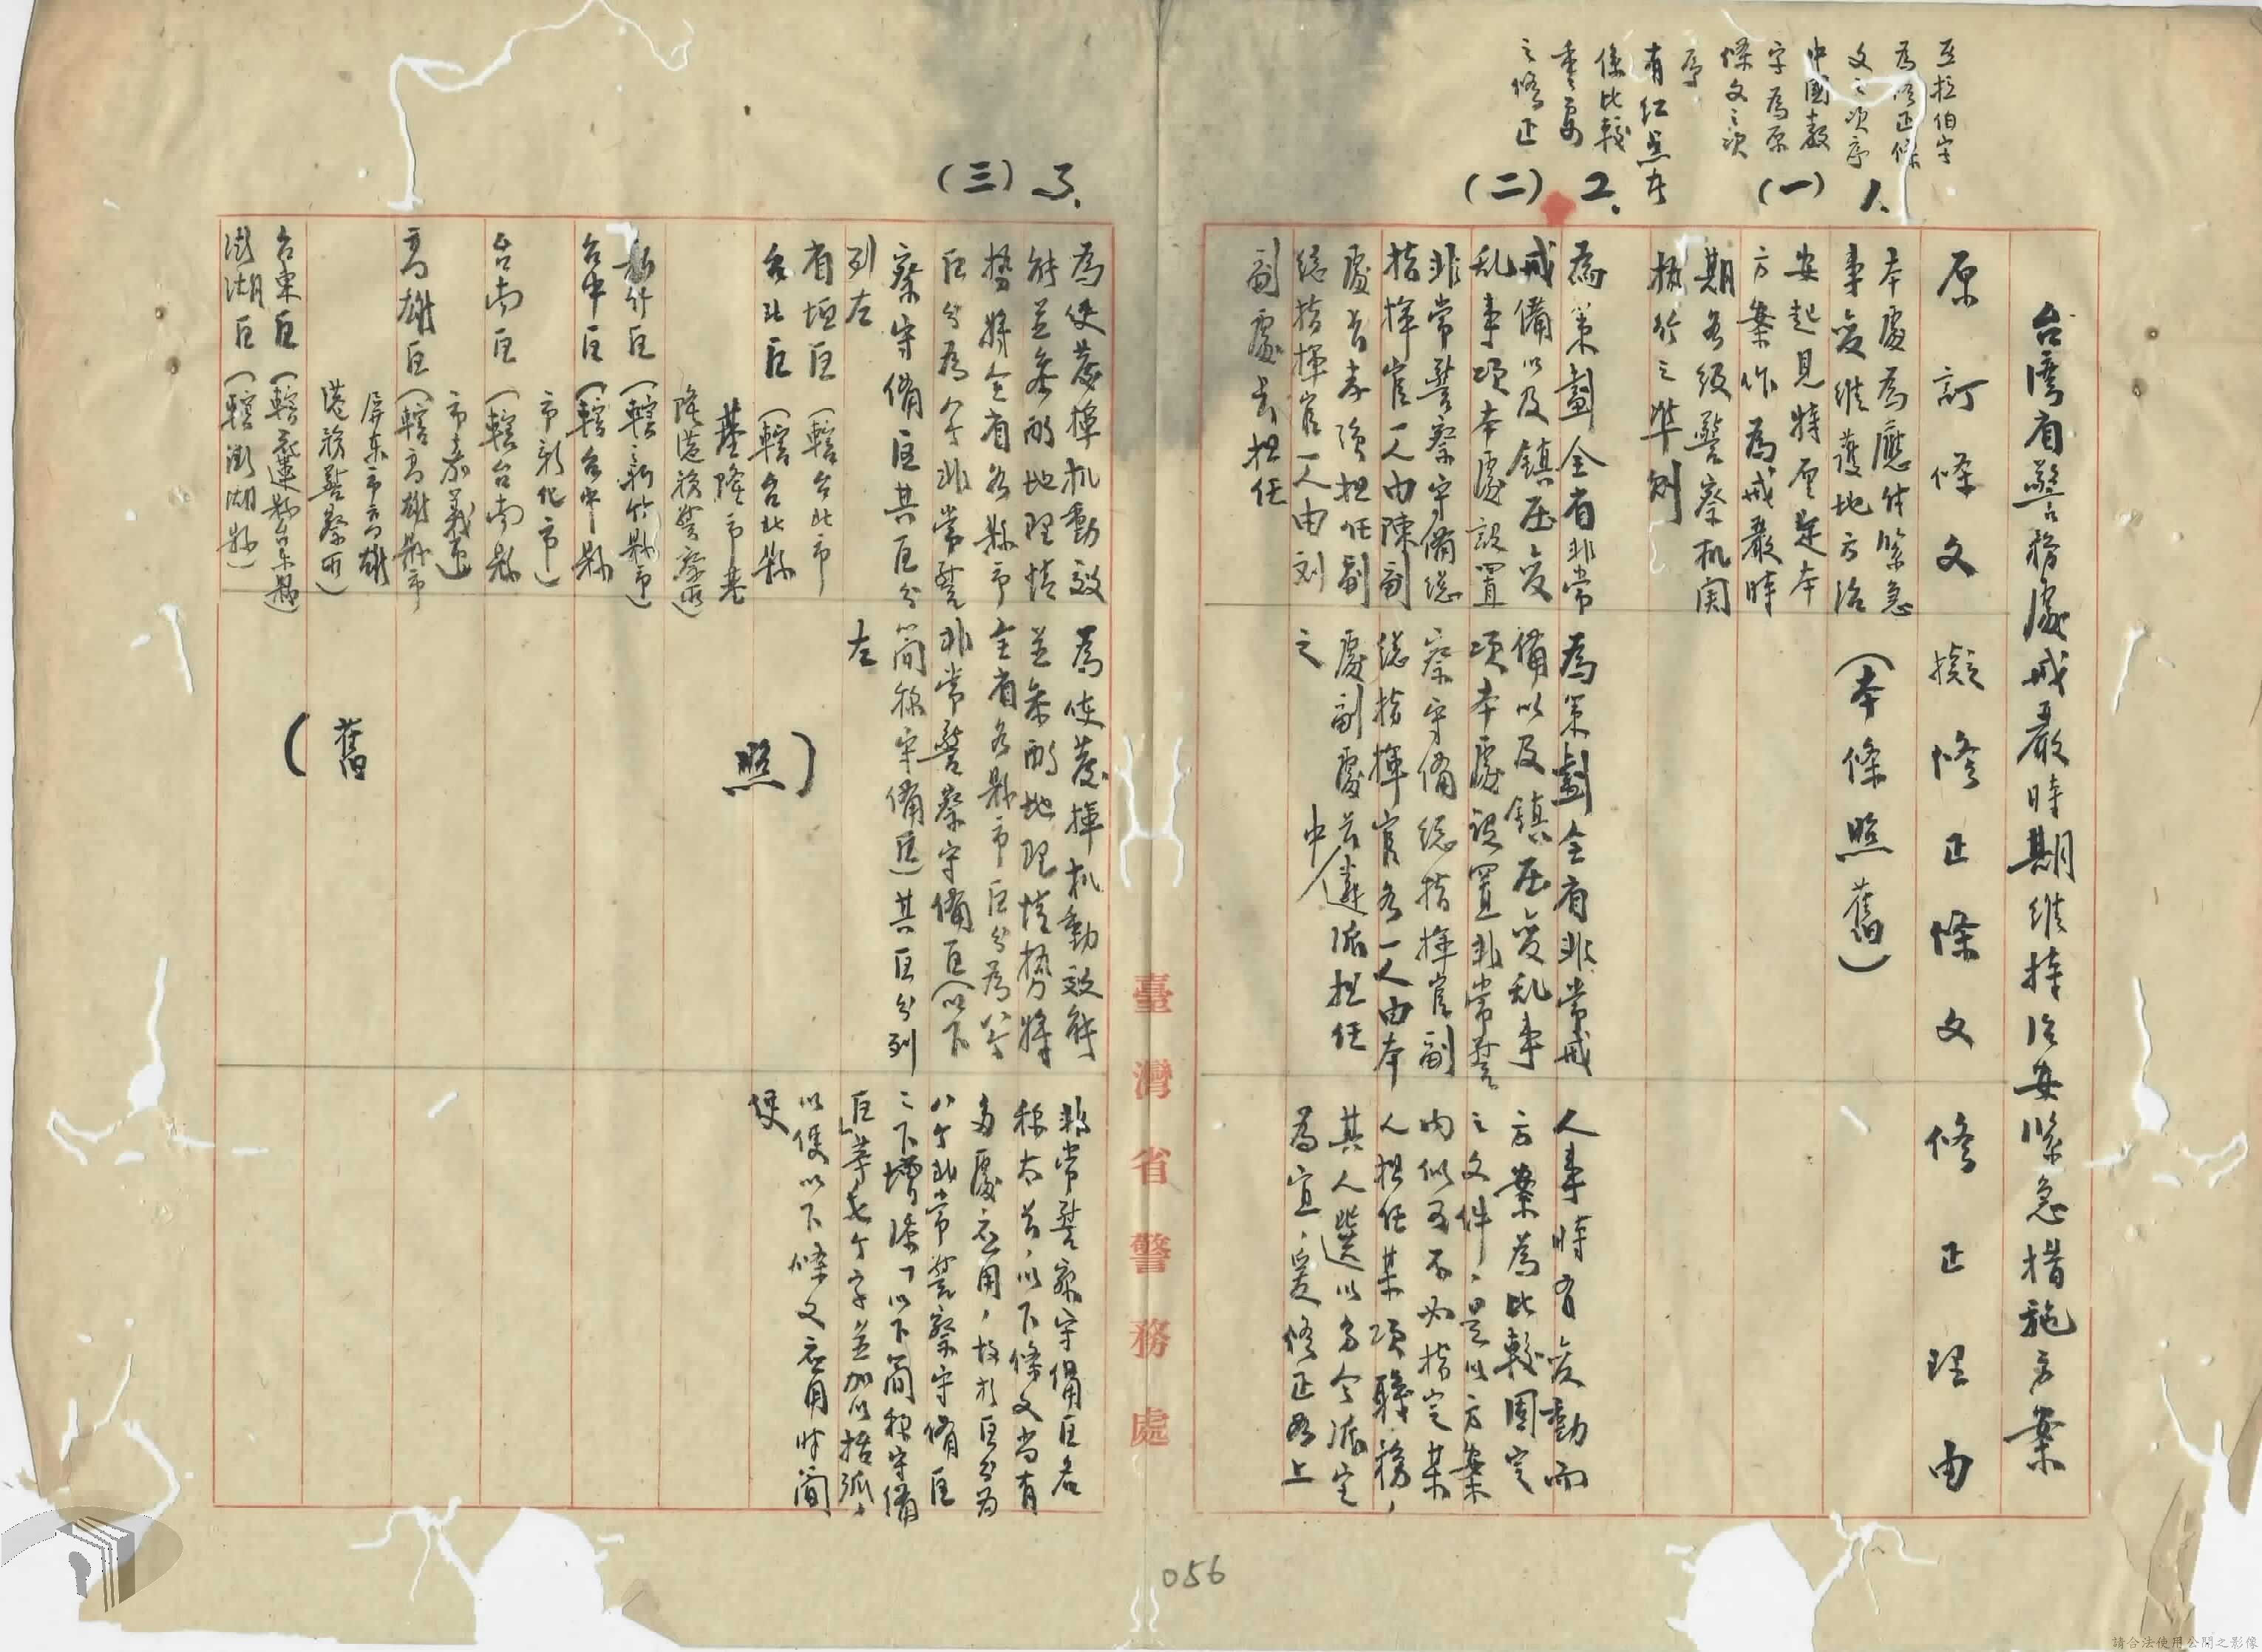 亞拉伯字
為修正條
文之次序
中國數
字為原
條文之次
序
有紅点者
係比較
重要
之修正
1.
(一)
2.
(二)
3.
(三)
台灣省警務處戒嚴時期維持治安緊急措施方案
原訂條文
擬修正條文
修正理由
本處為應付緊急
事變維護地方治
安起見特厘定本
方案作為戒嚴時
期各級警察机関
執行之準則
(本條照舊)
為策劃全省非常
戒備以及鎮压变
乱事項本處設置
非常警察守備總
指揮官一人由陳副
處長孝強担任副
總指揮官一人由刘
副處長担任
為策劃全省非常戒
備以及鎮压变乱事
項本處設置非常警
察守備總指揮官副
總指揮官各一人由本
處副處長中遴派担任
之
人事時有变動而
方案為比較固定
之文件，是以方案
内似可不必指定某
人担任某項職務，
其人選以另令派定
為宜，爰修正如上
為使發揮机動效
能並参酌地理情
势將全省各縣市
区分為八个非常警
察守備区其区分
列左
省垣区(轄台北市)
台北区(轄台北縣
基隆市基
隆港務警察所)
新竹区(轄新竹縣市)
台中区(轄台中縣
市彰化市)
台南区(轄台南縣
市嘉義市)
高雄区(轄高雄縣市
屏東市高雄
港務警察所)
台東区(轄花蓮縣台東縣)
澎湖区(轄澎湖縣)
為使發揮机動效能
並参酌地理情势將
全省各縣市区分為八个
非常警察守備区(以下
简称守備区)其区分列
左
(照舊)
非常警察守備区名
称太長，以下條文尚有
多處应用，故於区分為
八个非常警察守備区
之下增添「以下简称守備
区」等七个字並加以括弧，
以便以下條文应用时简
便
臺灣省警務處
056
請合法使用公開之影像